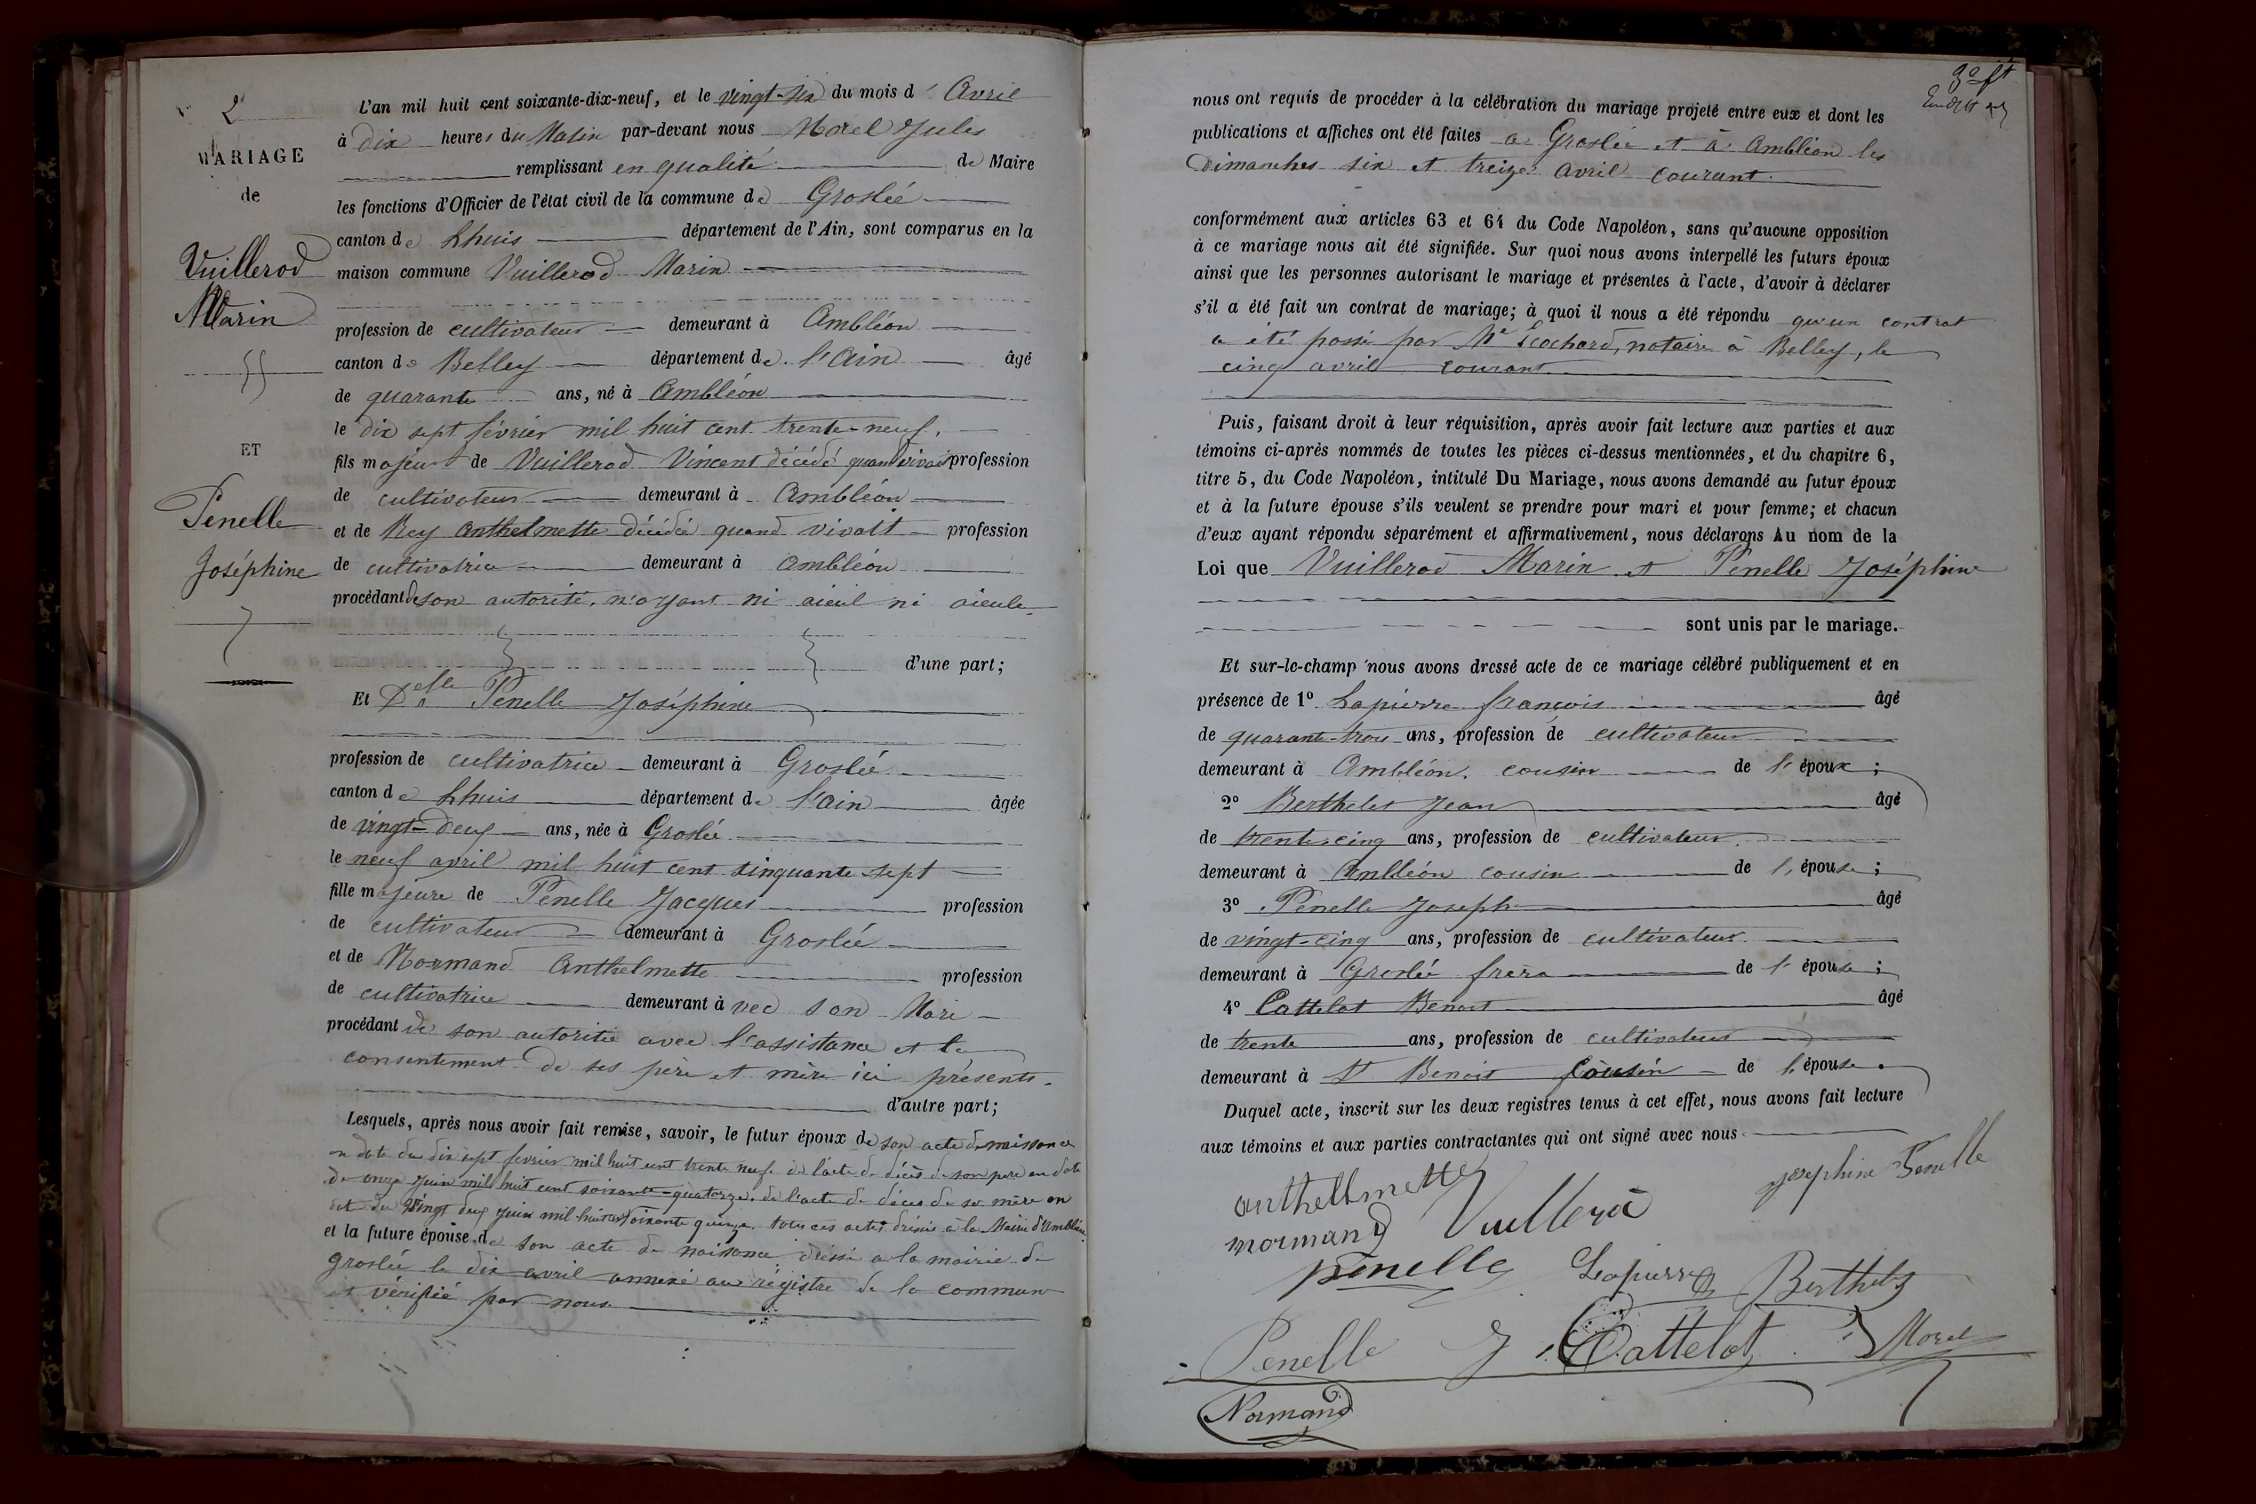 2
MARIAGE
de
Vuillerod
Marin
ET
Penelle
Joséphine
L'an mil huit cent soixante-dix-neuf, et le vingt-six du mois d'Avril
à dix heures du Matin par-devant nous Morel Jules
remplissant en qualité de Maire
les fonctions d'Officier de l'état civil de la commune de Groslée
canton de Lhuis département de l'Ain, sont comparus en la
maison commune Vuillerod Marin
profession de cultivateur demeurant à Ambléon
canton de Belley département de l'Ain âgé
de quarante ans, né à Ambléon
le dix sept février mil huit cent trente-neuf.
fils majeur de Vuillerod Vincent décédé quand vivait profession
de cultivateur demeurant à Ambléon
et de Rey Anthelmette décédée quand vivait profession
de cultivatrice demeurant à Ambléon
procédant de son autorité, n'ayant ni aieul ni aieule
d'une part;
Et Delle Penelle Joséphine
profession de cultivatrice demeurant à Groslée
canton de Lhuis département de l'Ain âgée
de vingt-deux ans, née à Groslée
le neuf avril mil huit cent cinquante sept
fille majeure de Penelle Jacques profession
de cultivateur demeurant à Groslée
et de Normand Anthelmette profession
de cultivatrice demeurant avec son Mari
procédant de son autorité avec l'assistance et le
consentement de ses père et mère ici présents.
d'autre part;
Lesquels, après nous avoir fait remise, savoir, le futur époux de son acte de naissance
en date du dix sept fevrier mil huit cent trente neuf de l'acte de décès de son père en date
du onze juin mil huit cent soixante-quatorze, de l'acte de décès de sa mère en
date du vingt deux juin mil huit cent soixante quinze, tous ces actes dressés à la Mairie d'Ambléon
et la future épouse de son acte de naissance dressé a la mairie de
Groslée le dix avril annexé au régistre de la commune
et vérifiée par nous
3e ft
nous ont requis de procéder à la célébration du mariage projeté entre eux et dont les
publications et affiches ont été faites a Groslée et à Ambléon les
Dimanches six et treize avril courant.
conformément aux articles 63 et 64 du Code Napoléon, sans qu'aucune opposition
à ce mariage nous ait été signifiée. Sur quoi nous avons interpellé les futurs époux
ainsi que les personnes autorisant le mariage et présentes à l'acte, d'avoir à déclarer
s'il a été fait un contrat de mariage; à quoi il nous a été répondu qu'un contrat
a été passé par Me notaire à Belley, le
cinq avril courant.
Puis, faisant droit à leur réquisition, après avoir fait lecture aux parties et aux
témoins ci-après nommés de toutes les pièces ci-dessus mentionnées, et du chapitre 6,
titre 5, du Code Napoléon, intitulé Du Mariage, nous avons demandé au futur époux
et à la future épouse s'ils veulent se prendre pour mari et pour femme; et chacun
d'eux ayant répondu séparément et affirmativement, nous déclarons Au nom de la
Loi que Vuillerod Marin et Penelle Joséphine
sont unis par le mariage.
Et sur-le-champ nous avons dressé acte de ce mariage célébré publiquement et en
présence de 1° Lapierre françois âgé
de quarante-trois ans, profession de cultivateur
demeurant à Ambléon. cousin de l'époux;
2° Berthelet Jean âgé
de trente-cinq ans, profession de cultivateur
demeurant à Ambléon cousin de l'épouse;
3° Penelle Joseph âgé
de vingt-cinq ans, profession de cultivateur
demeurant à Groslée frère de l'épouse;
4° Cattelot Benoit âgé
de trente ans, profession de cultivateur
demeurant à St Benoit Cousin de l'épouse.
Duquel acte, inscrit sur les deux registres tenus à cet effet, nous avons fait lecture
aux témoins et aux parties contractantes qui ont signé avec nous
anthellmette
josephine Penelle
normand Vuillerod
penelle Lapierre Berthelet
Penelle J Cattelot Morel
Normand